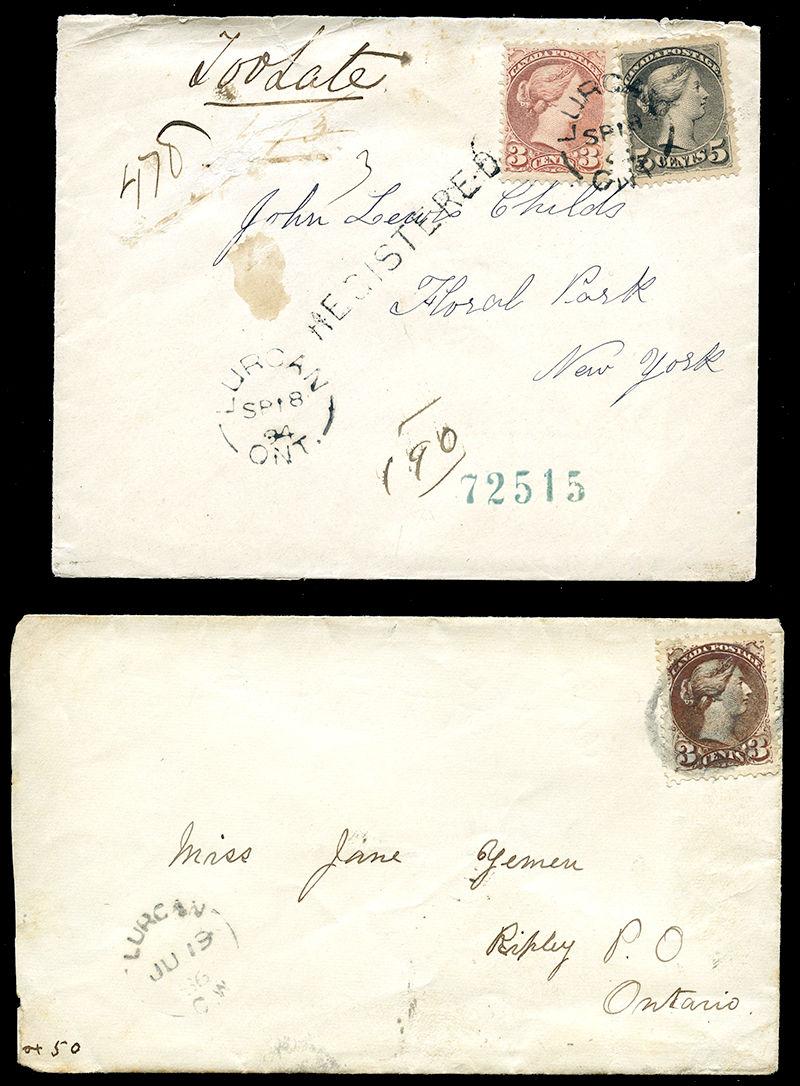 Too Late
CANADA POSTAGE
3 CENTS 3
CANADA POSTAGE
5 CENTS 5
LURGAN
SP 18
478
3
REGISTERED
John Lewis Childs
Floral Park
New York
LURGAN
SP 18
94
ONT.
190
72515
CANADA POSTAGE
3 CENTS 3
Miss Jane Yemen
Ripley P.O
Ontario.
LURGAN
JU 13
86
C W
50